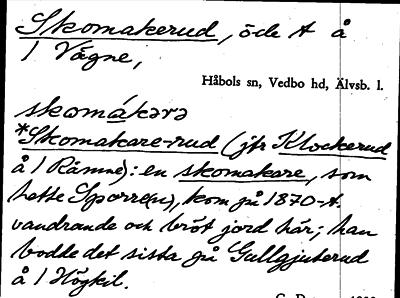 Skomakerud, öde t å
1 Vägne,
Håbols sn, Vedbo hd, Älvsb. l.
skomákərə
*Skomakare-rud (jfr Klockerud
å 1 Rämne): en skomakare, som
hette Sporre(n), kom på 1870-t.
vandrande och bröt jord här; han
bodde det sista på Gullgjuterud
å 1 Högkil.